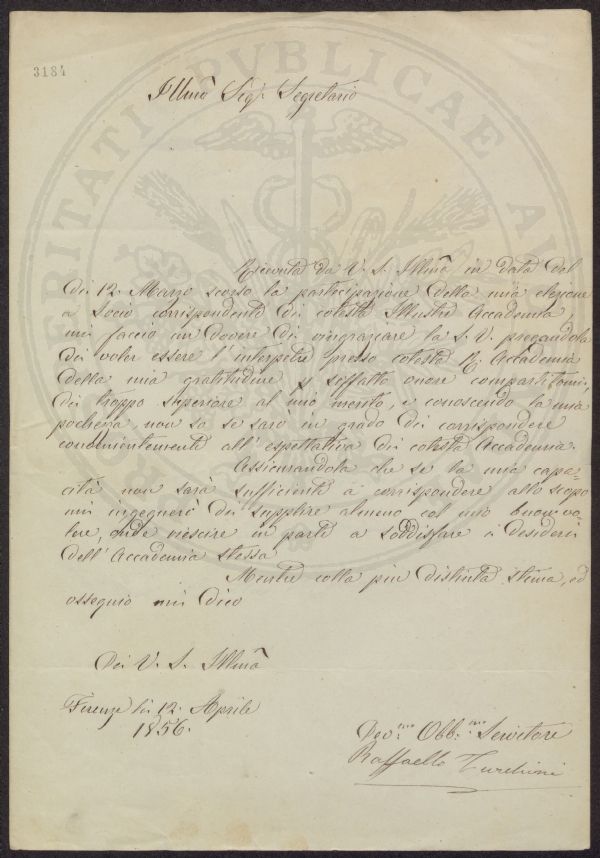 3184
Illmo Sigr. Segretario
Ricevuta da V. S. Illma in data del
dì 12. Marzo scorso la partecipazione della mia elezione
a Socio corrispondente di cotesta Illustre Accademia
mi faccio in dovere di ringraziare la S. V. pregandola
di voler essere l'interpetre presso cotesta R. Accademia
della mia gratitudine p siffatto onore compartitomi,
di troppo superiore al mio merito, e conoscendo la mia
pochezza non so se sarò in grado di corrispondere
convenientemente all'espettativa di cotesta Accademia.
Assicurandola che se la mia capa=
cità non sarà sufficiente a corrispondere allo scopo
mi ingegnerò di supplire almeno col mio buon vo
lere, onde riescire in parte a soddisfare i desideri
dell'Accademia stessa
Mentre colla più distinta stima, ed
ossequio mi dico
Di V. S. Illma
Firenze li 12. Aprile
1856.
Devmo. Obbmo. Servitore
Raffaello Turchini
PVBLICAE